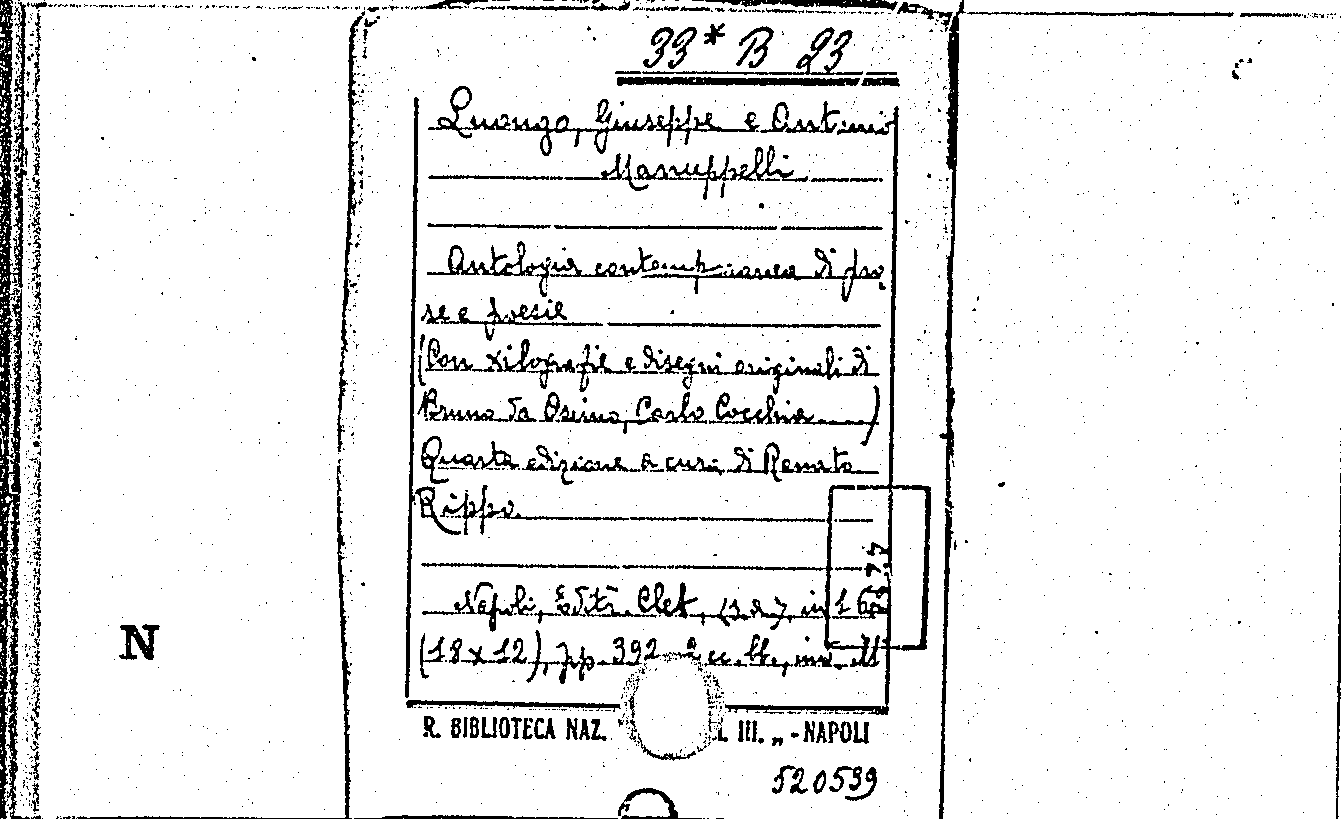 33* B 23
Luongo, Giuseppe e Antonio
Manuppelli
Antologia contemporanea di pro
se e poesie
(Con xilografie e disegni originali di
Bruno da Osimo, Carlo Cocchia)
Quarta edizione a cura di Renato
Rippo.
Napoli, Edit. Clet, (s.d.), in 16°
(18x12), pp. 392 2 cc. bb., inv. ill
N
R. BIBLIOTECA NAZ. L III. „ - NAPOLI
520539